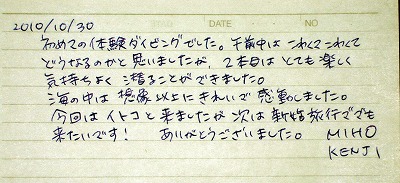 DATE NO
2010/10/30
初めての体験ダイビングでした。午前中はこわくてこわくて
どうなるのかと思いましたが、2本目はとても楽しく
気持ちよく潜ることができました。
海の中は想像以上にきれいで感動しました。
今回はイトコと来ましたが次は新婚旅行ででも
来たいです! ありがとうございました。 MIHO
KENJI